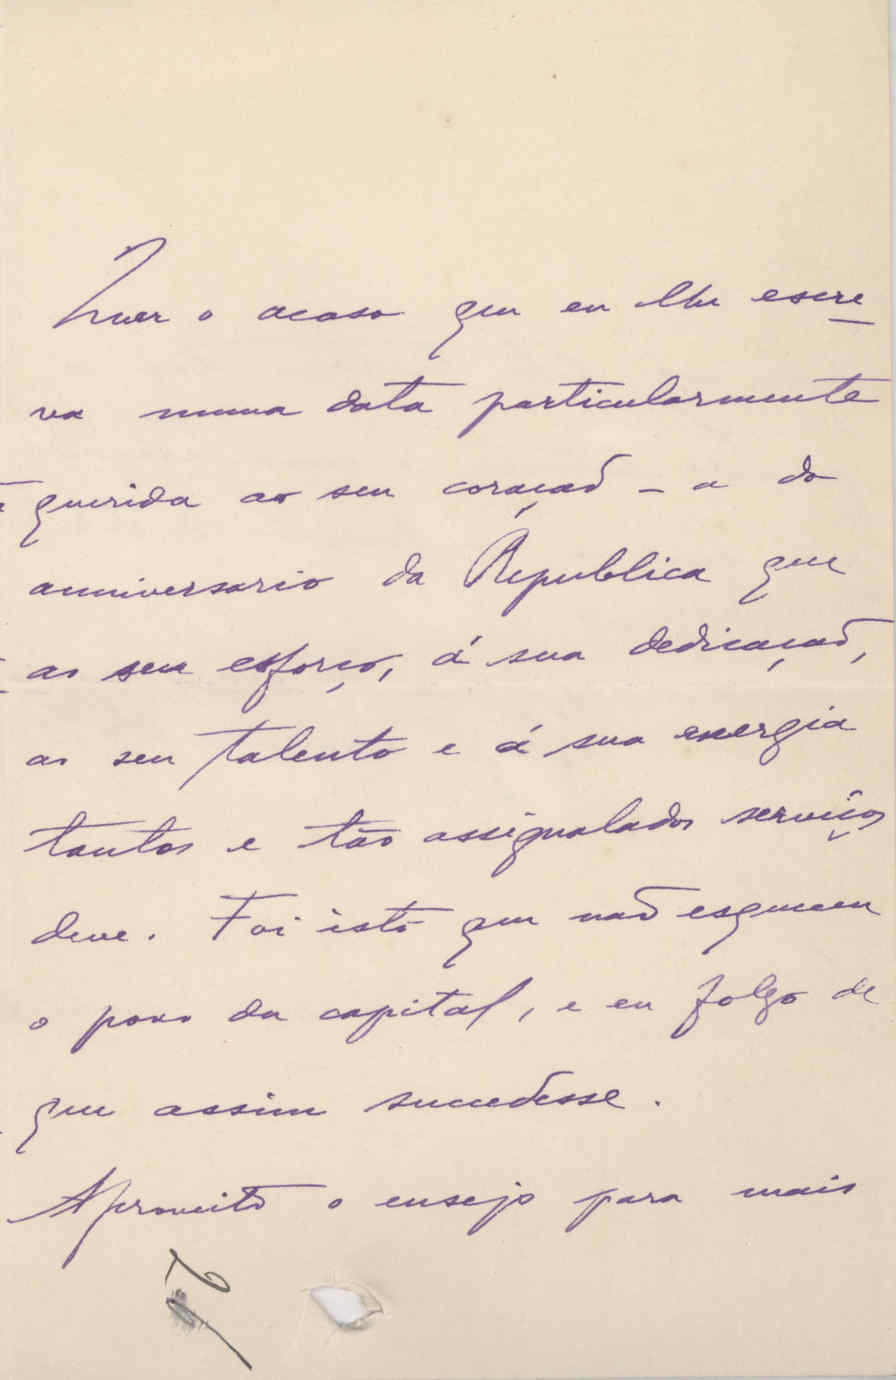 Quer o acaso que eu lhe escre
va numa data particularmente
querida ao seu coração – a do
anniversario da Republica que
ao seu esforço, á sua dedicação,
ao seu talento e á sua energia
tantos e tão assignalados serviços
deve. Foi isto que não esqueceu
o povo da capital, e eu folgo de
que assim succedesse.
Aproveito o ensejo para mais